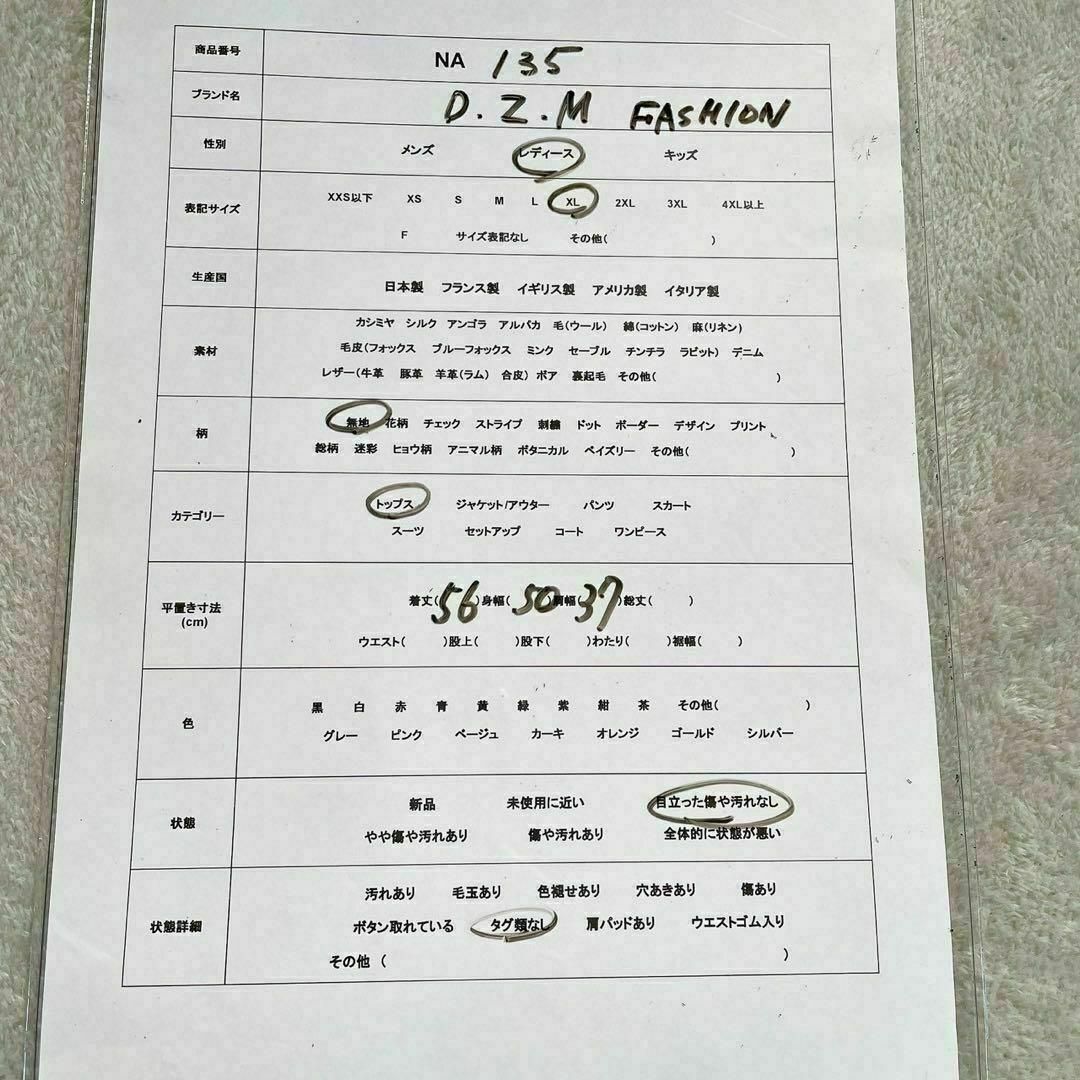 商品番号 NA 135
ブランド名 D.Z.M FASHION
性別 メンズ レディース キッズ
表記サイズ XXS以下 XS S M L XL 2XL 3XL 4XL以上
F サイズ表記なし その他( )
生産国 日本製 フランス製 イギリス製 アメリカ製 イタリア製
素材 カシミヤ シルク アンゴラ アルパカ 毛(ウール) 綿(コットン) 麻(リネン)
毛皮(フォックス ブルーフォックス ミンク セーブル チンチラ ラビット) デニム
レザー(牛革 豚革 羊革(ラム) 合皮) ボア 裏起毛 その他( )
柄 無地 花柄 チェック ストライプ 刺繍 ドット ボーダー デザイン プリント
総柄 迷彩 ヒョウ柄 アニマル柄 ボタニカル ペイズリー その他( )
カテゴリー トップス ジャケット/アウター パンツ スカート
スーツ セットアップ コート ワンピース
平置き寸法 (cm) 着丈(56)身幅(50)肩幅(37)総丈( )
ウエスト( )股上( )股下( )わたり( )裾幅( )
色 黒 白 赤 青 黄 緑 紫 紺 茶 その他( )
グレー ピンク ベージュ カーキ オレンジ ゴールド シルバー
状態 新品 未使用に近い 目立った傷や汚れなし
やや傷や汚れあり 傷や汚れあり 全体的に状態が悪い
状態詳細 汚れあり 毛玉あり 色褪せあり 穴あきあり 傷あり
ボタン取れている タグ類なし 肩パッドあり ウエストゴム入り
その他 ( )